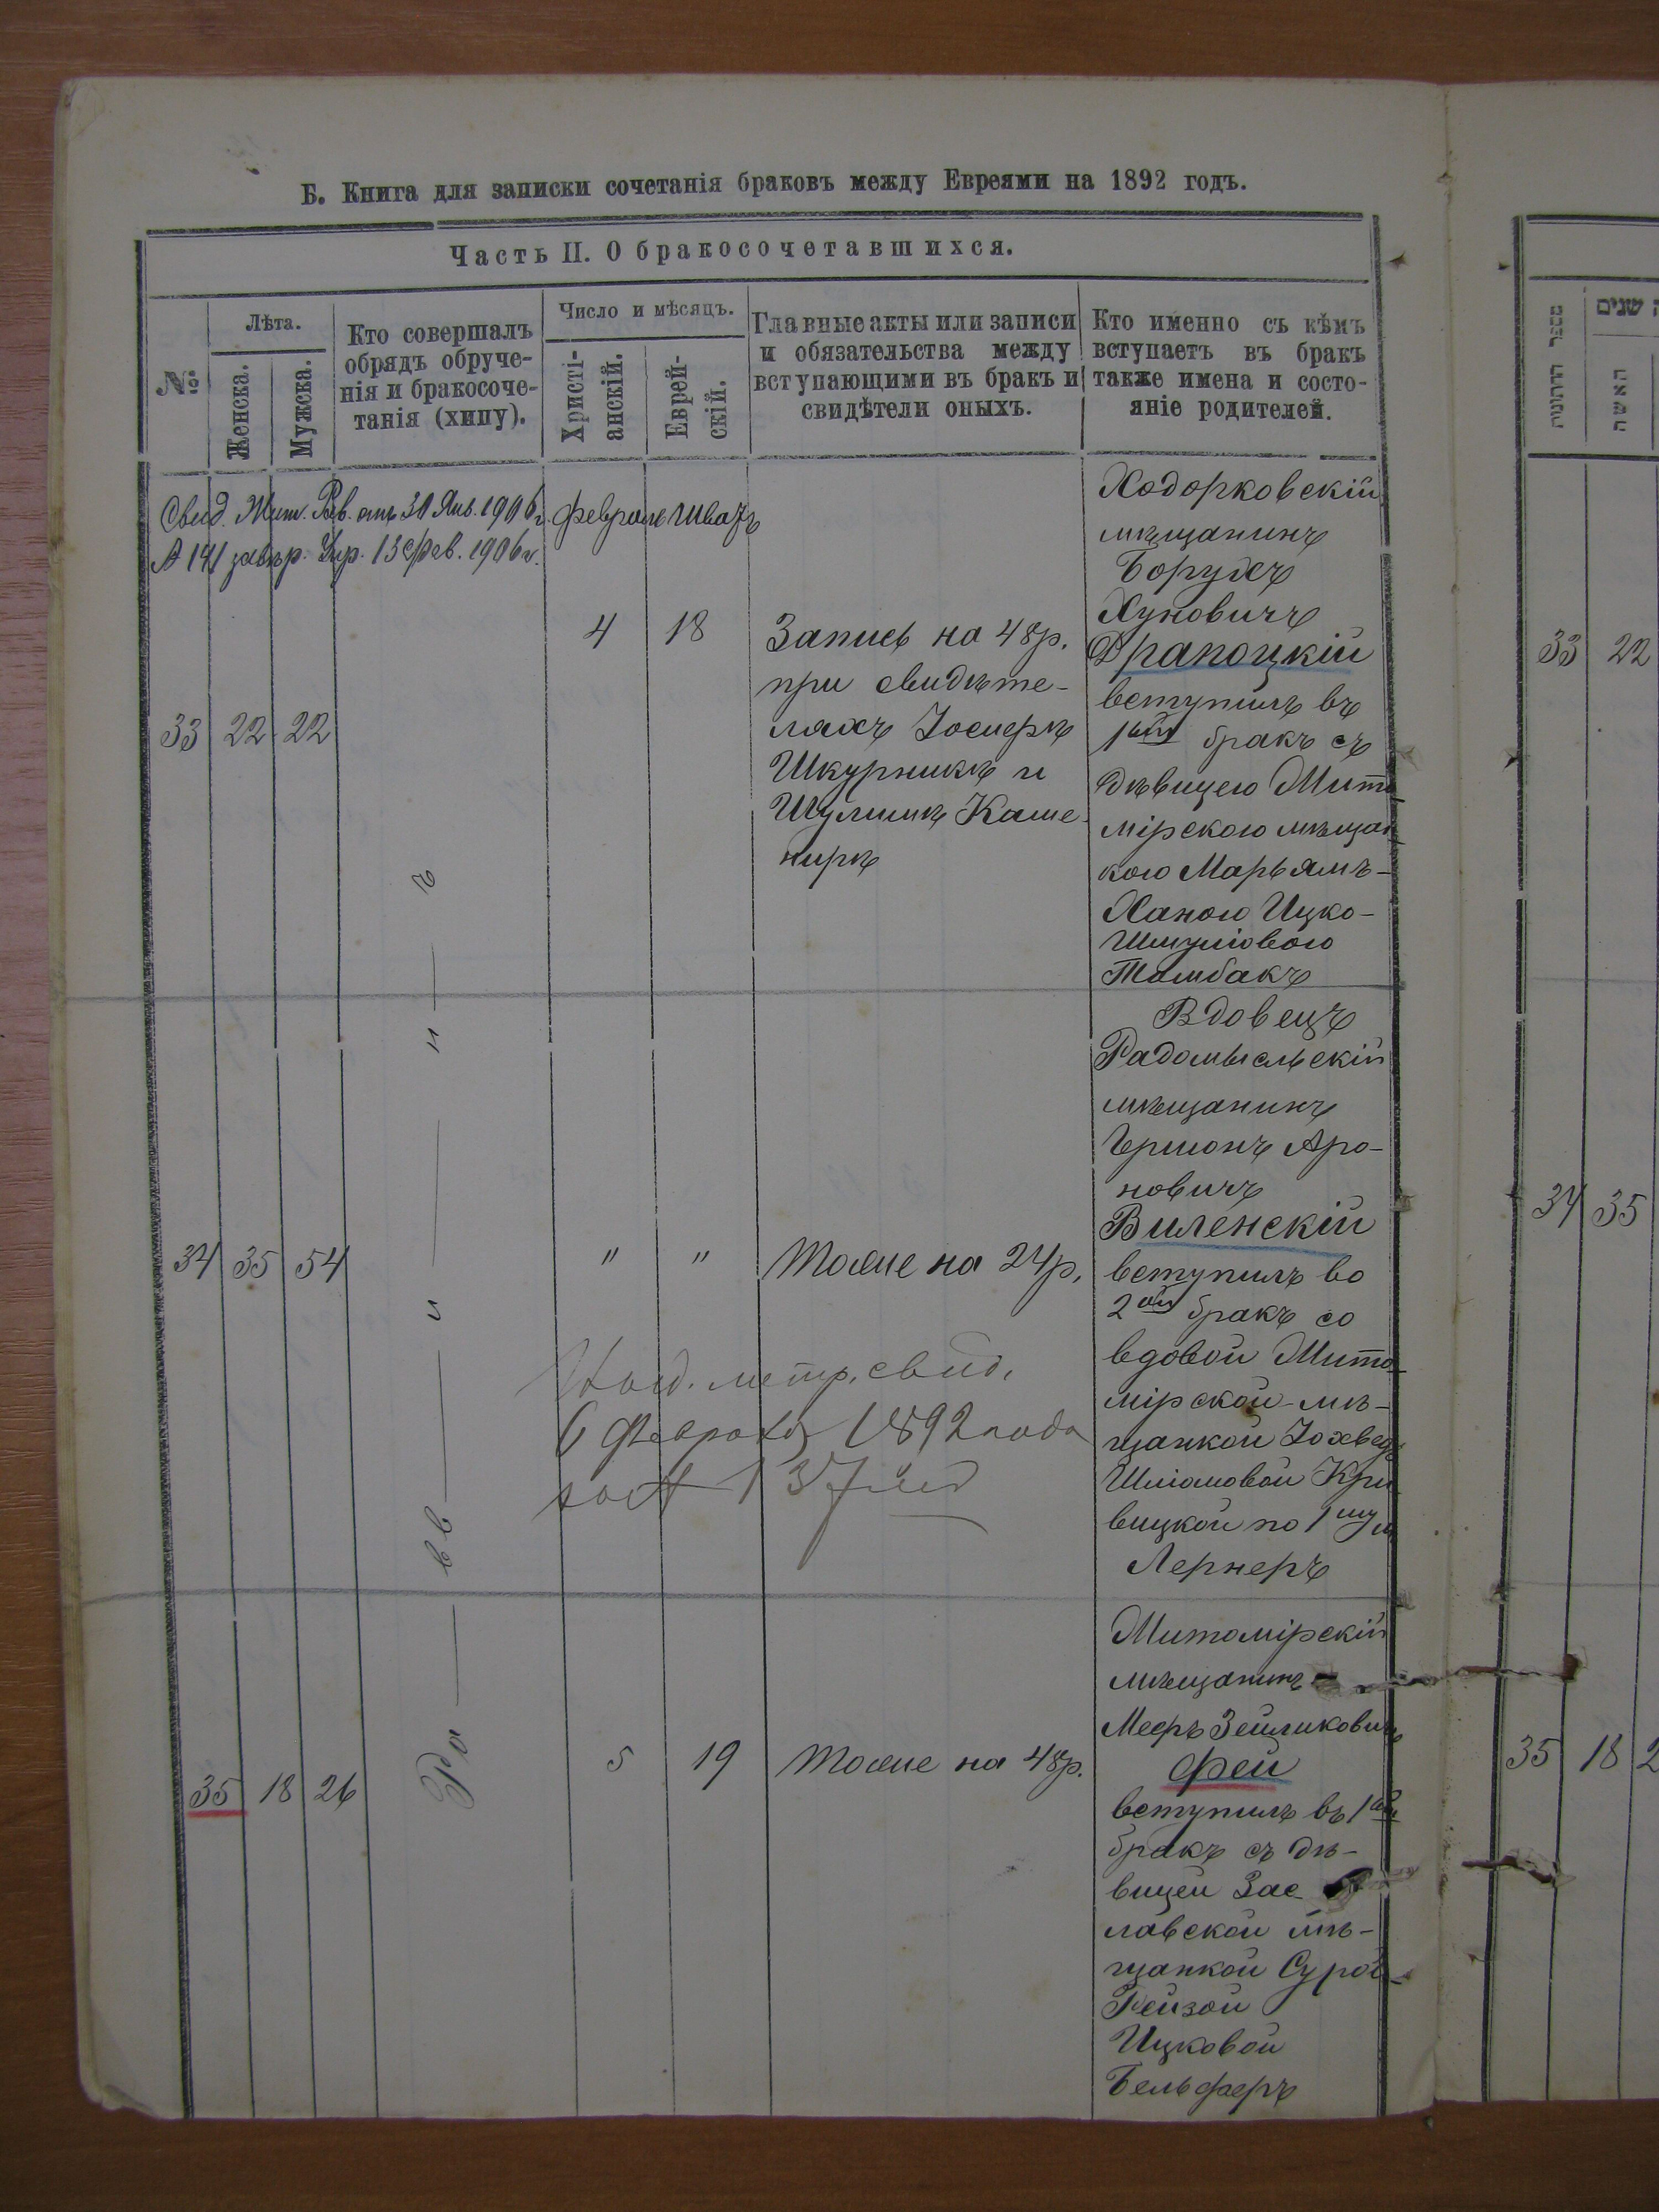 Б. Книга для записки сочетанія браковъ между Евреями на 1892 годъ.
Часть II. О бракосочетавшихся.
№
Лѣта.
Женска.
Мужска.
Кто совершалъ
обрядъ обруче-
нія и бракосоче-
танія (хипу).
Число и мѣсяцъ.
Христі-
анскій.
Еврей-
скій.
Главные акты или записи
и обязательства между
вступающими въ бракъ и
свидѣтели оныхъ.
Кто именно съ кѣмъ
вступаетъ въ бракъ
также имена и состо-
яніе родителей.
Свид. Жит. Рав. отъ 30 Янв. 1906 г.
№ 141 завѣр. Упр. 13 Фев. 1906 г.
Февраль Шватъ
33 22 22
4 18
Запись на 48 р.
при свидѣте-
ляхъ Іосифѣ
Шкурникѣ и
Шулимѣ Каше-
нирѣ
Ходорковскій
мѣщанинъ
Борухъ
Хуновичъ
Драпоцкій
вступилъ въ
1ый бракъ съ
дѣвицею Жито-
мірскою мѣщан
кою Марьямъ-
Ханою Ицко-
Шмуловою
Томбакъ
34 35 54
" "
Тоже на 24 р.
метр. свид.
6 Февраля 1892 года
за № 137
Вдовецъ
Радомысльскій
мѣщанинъ
Гершонъ Аро-
новичъ
Виленскій
вступилъ во
2ой бракъ со
вдовой Жито-
мірской мѣ-
щанкой Іохвед
Шліомовой Кри
вицкой по 1 му м
Лернеръ
35 18 26
5 19
Тоже на 48 р.
Житомірскій
мѣщанинъ
Мееръ Зейликовичъ
Фей
вступилъ въ 1ый
бракъ съ дѣ-
вицей Зас
лавской мѣ-
щанкой Сурой-
Рейзой
Ицковой
Бельферъ
מספר
שנים
האשה
33 22
34 35
35 18 2